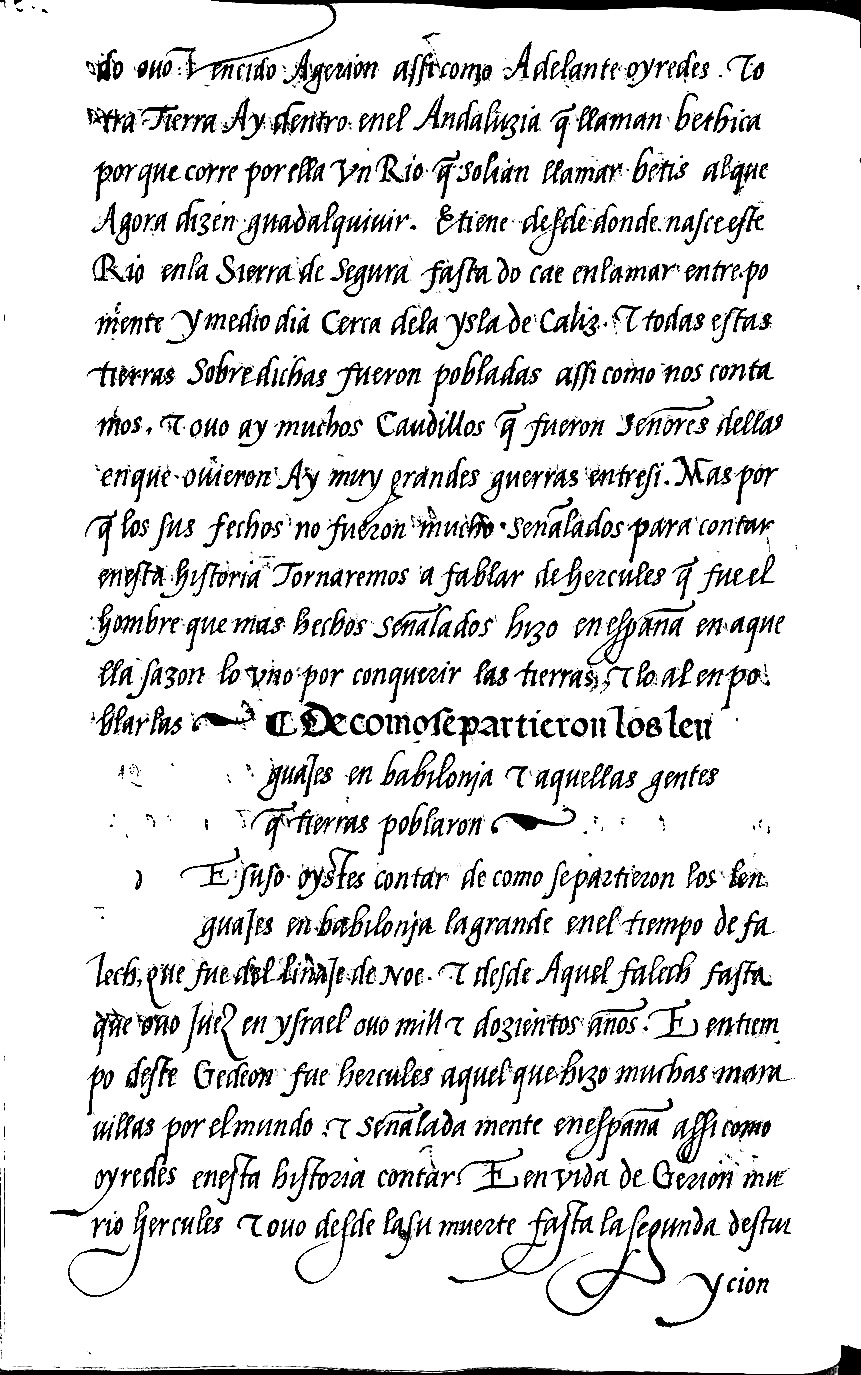 do ouo vencido Agerion assi como Adelante oyredes. To
tra Tierra Ay dentro enel Andaluzia q̃ llaman bethica
por que corre por ella vn Rio q̃ solian llamar betis al que
Agora dizen guadalquiuir. E tiene desde donde nasce este
Rio en la Sierra de Segura fasta do cae en la mar entre po
niente y medio dia Cerca de la ysla de Caliz. τ todas estas
tierras Sobre dichas fueron pobladas assi como nos conta
mos. τ ouo ay muchos Caudillos q̃ fueron Señores dellas
en que ouieron Ay muy grandes guerras entresi. Mas por
q̃ los sus fechos no fueron mucho señalados para contar
enesta historia Tornaremos a fablar de hercules q̃ fue el
hombre que mas hechos señalados hizo en españa en aque
lla sazon lo vno por conquerir las tierras, τ lo al en po
blarlas ¶ De como se partieron los len
guajes en babilonja τ aquellas gentes
q̃ tierras poblaron
E suso oystes contar de como se partieron los len
guajes en babilonja la grande enel tiempo de fa
lech, que fue del linaje de Noe. τ desde Aquel falech fasta
que ouo juez en ysrael ouo mill τ dozientos años. E en tiem
po deste Gedeon fue hercules aquel que hizo muchas mara
uillas por el mundo τ señalada mente en españa assi como
oyredes enesta historia contar E en vida de Gerion mu
rio hercules τ ouo desde la su muerte fasta la segunda destru
ycion